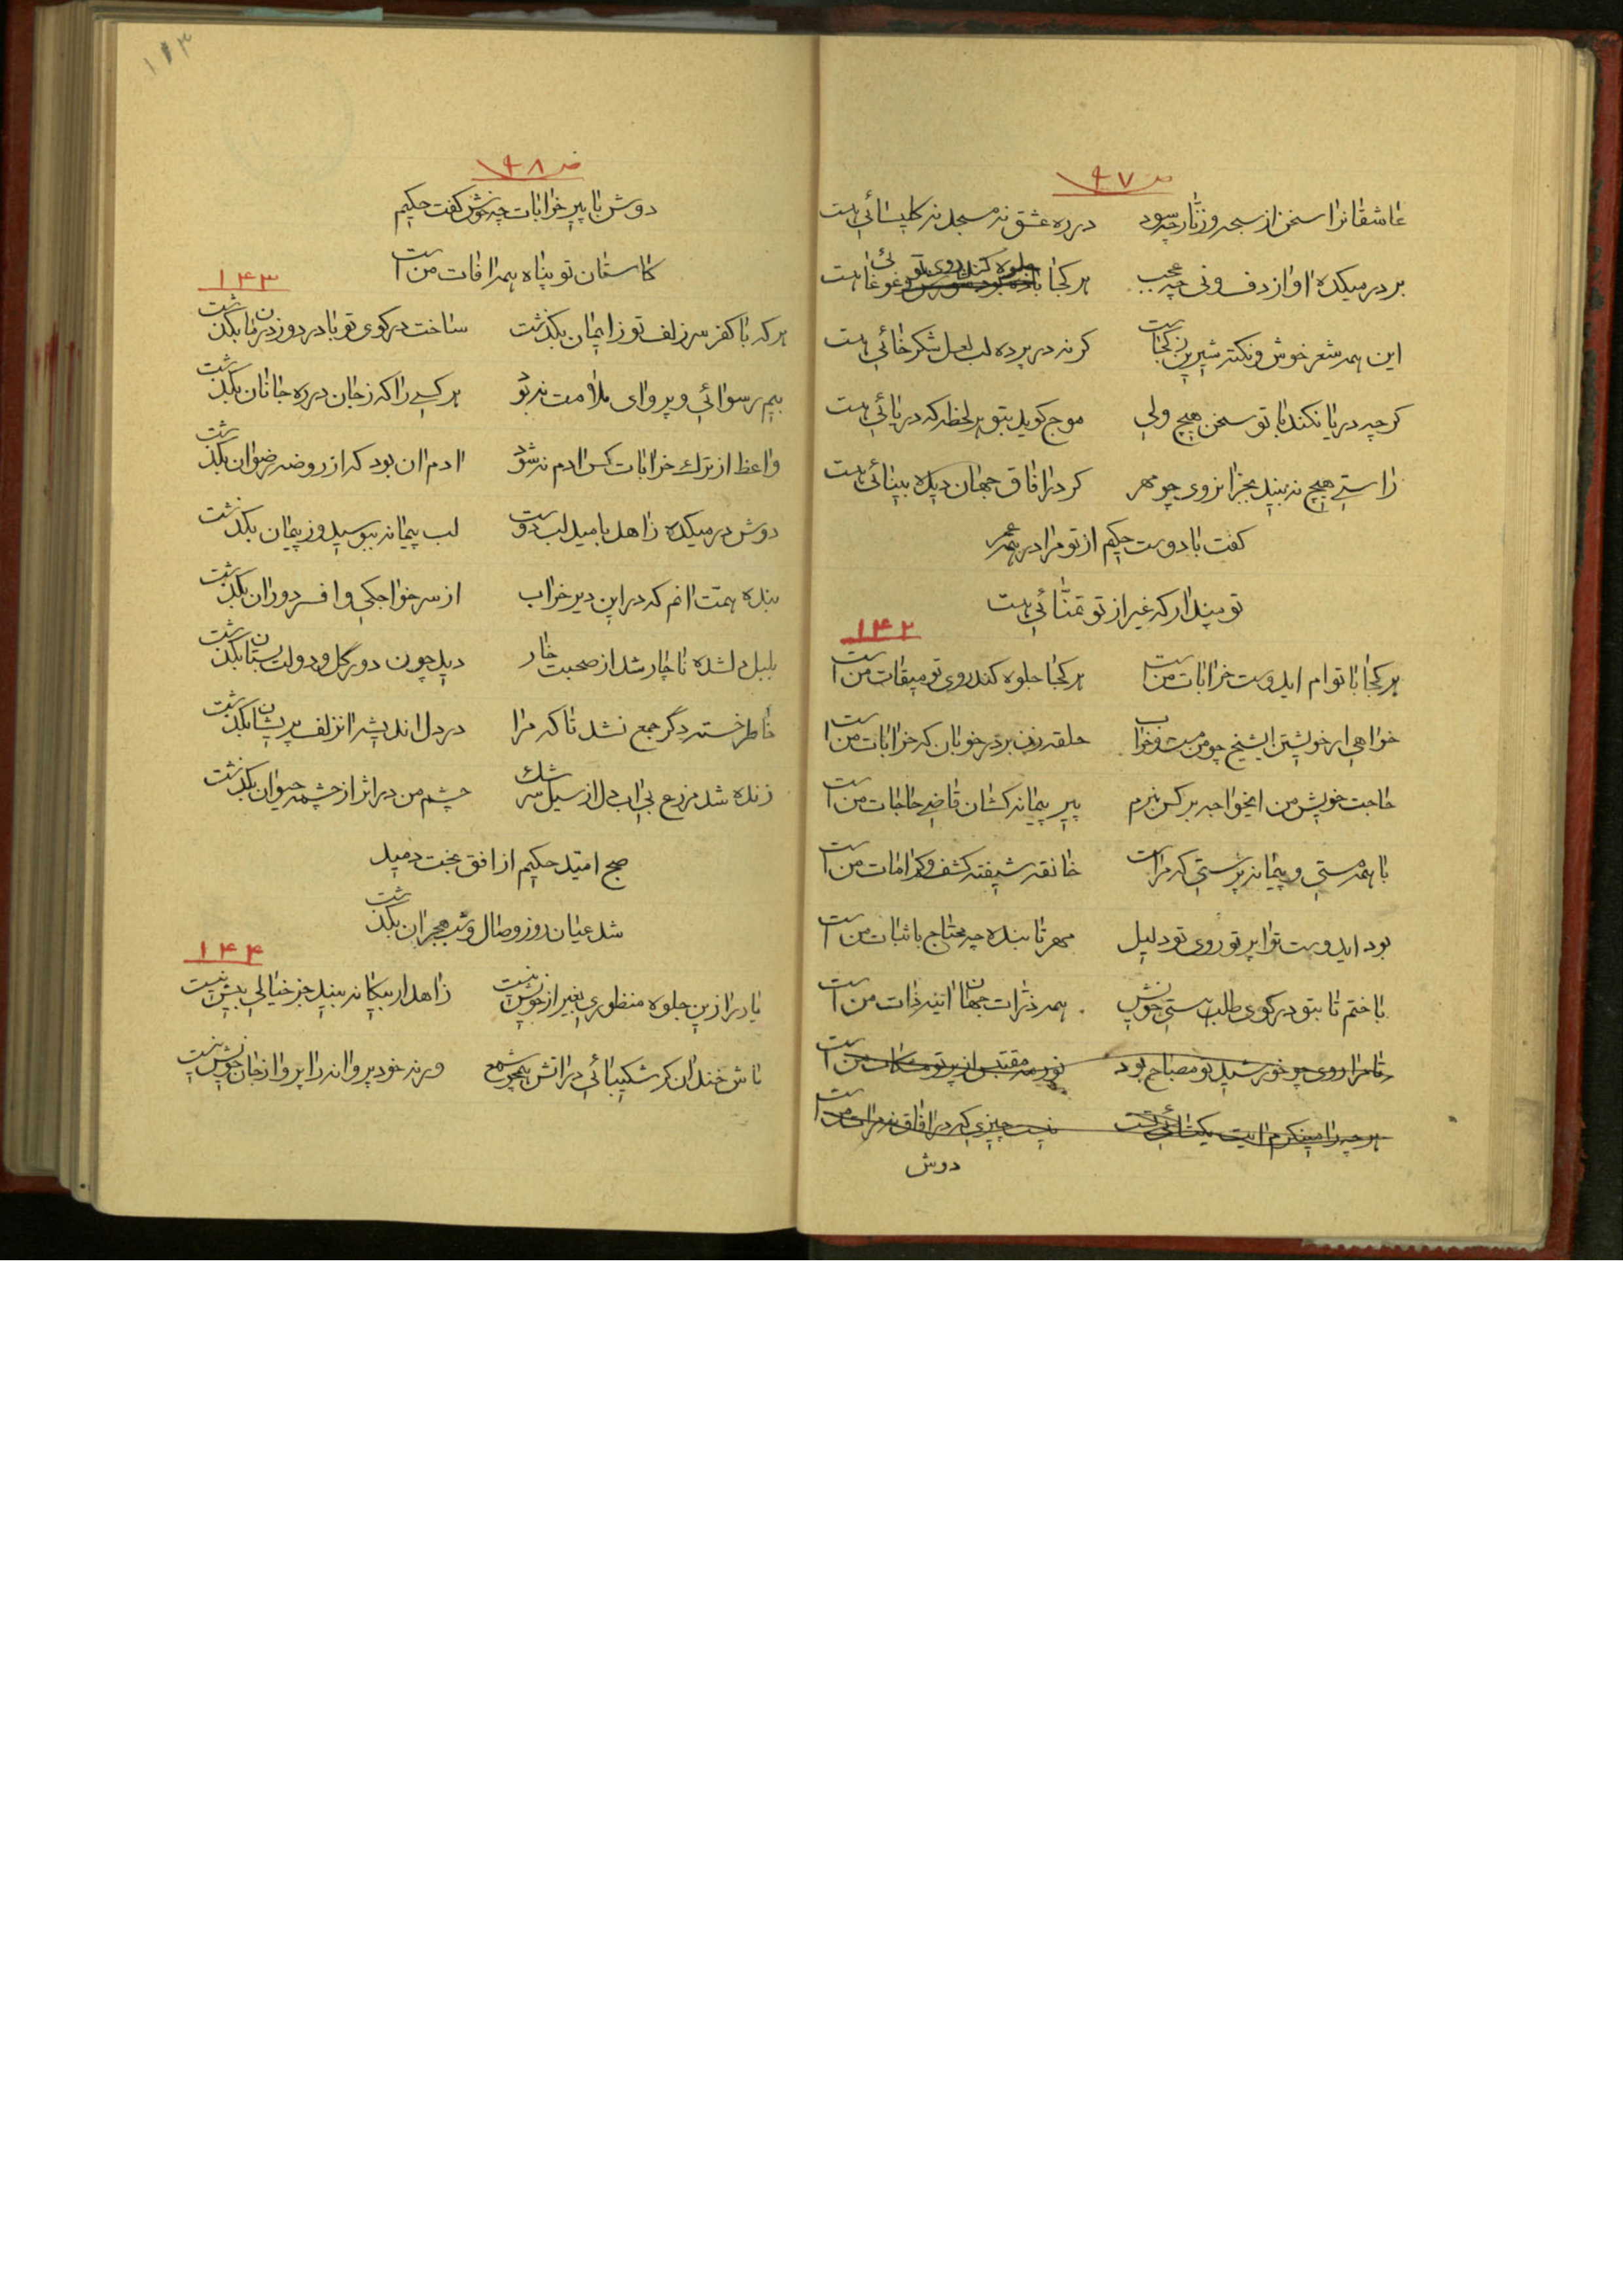 ص ۹۷
عاشقانرا سخن از سبحه و زنار چه سود در ره عشق نه مسجد نه کلیسائی هست
بر در میکده اواز دف و نی چه عجب هر کجا جلوه کند روی تو غوغائی هست
این همه شعر خوش و نکته شیرین ز کجاست کر نه در پرده لب لعل شکر خائی هست
کر چه دریا نکند با تو سخن هیچ ولی موج کوید بتو هر لحظه که دریائی هست
راستی هیچ نه بیند بجز انروی چو مهر کر در افاق جهان دیده بینائی هست
کفت با دوست حکیم از تو مرا در همه عمر
تو مپندار که غیر از تو تمنائی هست
۱۴۲
هر کجا با توام ایدوست خرابات منست هر کجا جلوه کند روی تو میقات من است
خواهی ار خویشتن ایشیخ چو من مست و خراب حلقه زن بر در خوبان که خرابات من است
حاجت خویش من ایخواجه بر کس نبرم پیر پیمانه کشان قاضی حاجات من است
با همه مستی و پیمانه پرستی که مراست خانقه شیفته کشف و کرامات من است
بود ایدوست ترا پرتو روی تو دلیل مهر تابنده چه محتاج باثبات من است
باختم تا بتو در کوی طلب هستی خویش همه ذرات جهان ائینه ذات من است
تا مرا روی چو خورشید تو مصباح بود نور مه مقتبس از پرتو مشکات من است
هر چه را مینکرم ایت یکتائی تست نیست چیزی که در افاق نه مرات من است
دوش
۱۱۳
ص ۹۸
دوش با پیر خرابات چه خوش کفت حکیم
کاستان تو پناه همه افات من است
۱۴۳
هر که با کفر سر زلف تو ز ایمان بکذشت ساخت در کوی تو با درد و ز درمان بکذشت
بیم رسوائی و پروای ملامت نه بود هر کسی را که ز جان در ره جانان بکذشت
واعظ از ترک خرابات کس ادم نه شود ادم ان بود که از روضه رضوان بکذشت
دوش در میکده زاهد بامید لب دوست لب پیمانه ببوسید و ز پیمان بکذشت
بنده همت انم که در این دیر خراب از سر خواجکی و افسر دوران بکذشت
بلبل دلشده ناچار شد از صحبت خار دید چون دور گل و دولت بستان بکذشت
خاطر خسته دگر جمع نشد تا که مرا در دل اندیشه انزلف پریشان بکذشت
زنده شد مزرع بی اب دل از سیل سرشک چشم من در اثر از چشمه حیوان بکذشت
صبح امید حکیم از افق بخت دمید
شد عیان روز وصال و شب هجران بکذشت
۱۴۴
یار را زین جلوه منظوری بغیر از خویش نیست زاهد ار بیکانه بیند جز خیالی بیش نیست
باش خندان کر شکیبائی در اتش همچو شمع ورنه خود پروانه را پروا ز جان خویش نیست